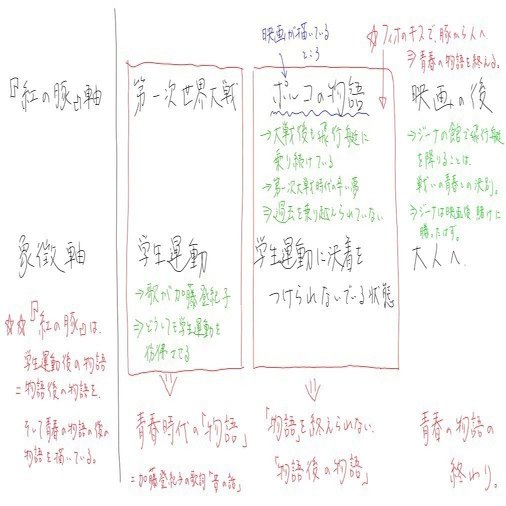 映画が描いている
ところ
☆フィオのキスで、豚から人へ
⇒青春の物語を終える。
『紅の豚』軸
第一次世界大戦
ポルコの物語
映画の後
→大戦後も飛行艇に
乗り続けている
→第一次大戦時代の辛い夢
⇒過去を乗り越えられていない
→ジーナの館で飛行艇
を降りることは、
戦いの青春との決別。
⇒ジーナは映画後、賭けに
勝ったはず。
象徴軸
学生運動
学生運動に決着を
つけられないでいる状態
大人へ
→歌が加藤登紀子
⇒どうしても学生運動を
彷彿させる
☆☆『紅の豚』は、
学生運動後の物語
=物語後の物語を、
そして青春の物語の後の
物語を描いている。
青春時代の「物語」
=加藤登紀子の歌詞「昔の話」
「物語」を終えられない
「物語後の物語」
青春の物語の
終わり。